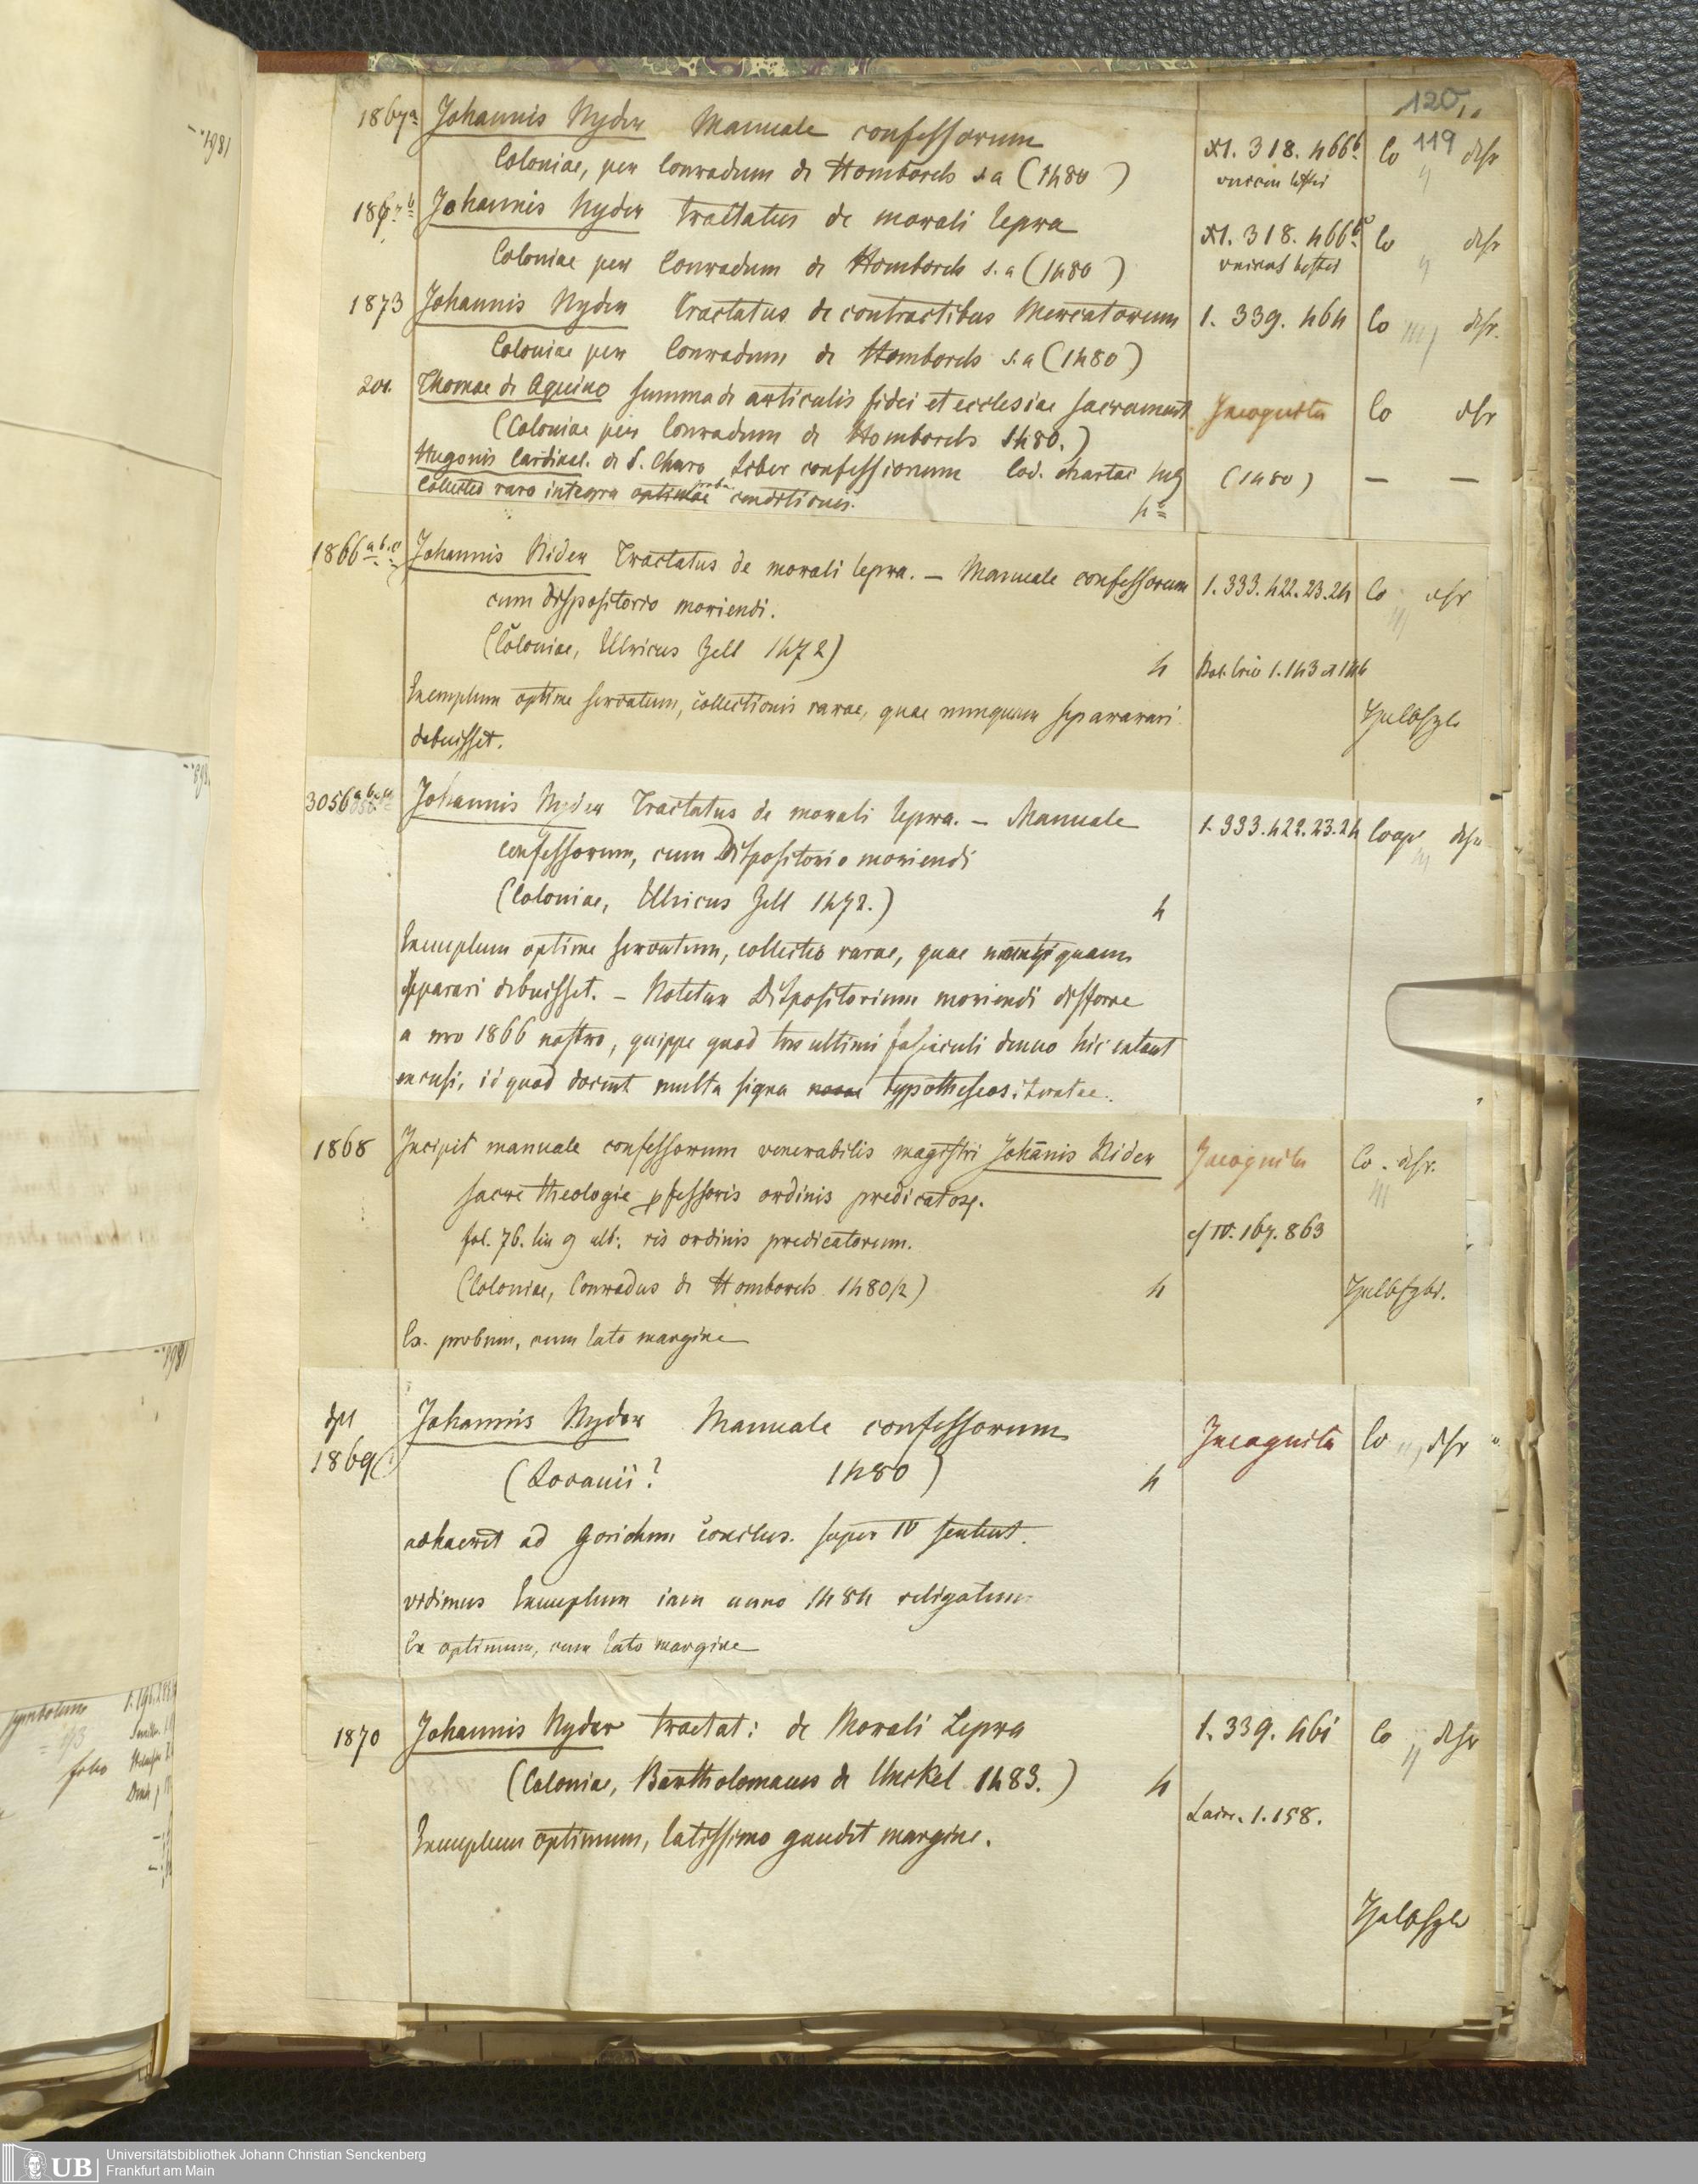 120
119
1867a Johannis Nyder Manuale confessorum XI. 318. 466b Co dsr
Coloniae, per Conradum de Homborch s a (1480)
1867b Johannis Nyder tractatus de morali lepra XI. 318. 466c Co dsr
Coloniae per Conradum de Homborch s. a (1480)
1873 Johannis Nyder Tractatus de contractibus Mercatorum 1. 339. 464 Co dsr.
Coloniae per Conradum de Homborch s. a (1480)
201. Thomae de Aquino summa de articulis fidei et ecclesiae sacrament Incognita Co dsr
(Coloniae per Conradum de Homborch 1480.)
Hugonis Cardinal. de S. Charo Liber confessionum Cod. chartac (1480) — —
Collectio raro integra conditionis. 4°
1866 a.b.c Johannis Nider Tractatus de morali lepra. — Manuale confessorum 1. 333. 422. 23. 24 Co dsr
cum dispositorio moriendi.
(Coloniae, Ulricus Zell 1472) 4
Exemplum optime servatum, collectionis rarae, quae nunquam separari
debuisset.
3056 a b c Johannis Nyder Tractatus de morali lepra. — Manuale 1. 333. 422. 23. 24
confessorum, cum Dispositorio moriendi
(Coloniae, Ulricus Zell 1472.) 4
Exemplum optime servatum, collectio rarae, quae nunquam
separari debuisset. — Notetur Dispositorium moriendi differre
a nro 1866 nostro, quippe quod tres ultimi fasciculi denuo hic extant
excusi, id quod docent multa signa typotheseos iteratae.
1868 Incipit manuale confessorum venerabilis magistri Johānis Nider Incognita Co. dsr.
sacre theologie pfessoris ordinis predicatoꝝ.
fol. 76. lin 9 ult: ris ordinis predicatorum. cf IV. 167. 863
(Coloniae, Conradus de Homborch 1480/2) 4
Ex. probum, cum lato margine
dpl
1869 Johannis Nyder Manuale confessorum Incognita Co dsr
(Lovanii? 1480) 4
adhaeret ad Gorichem Conclus. super IV sentent.
vidimus Exemplum iam anno 1484 religatum
Ex optimum, cum lato margine
1870 Johannis Nyder tractat: de Morali Lepra 1. 339. 461 Co dsr
(Coloniae, Bartholomaeus de Unckel 1483.) 4
Laire. 1. 158.
Exemplum optimum, latissimo gaudet margine.
UB Universitätsbibliothek Johann Christian Senckenberg
Frankfurt am Main